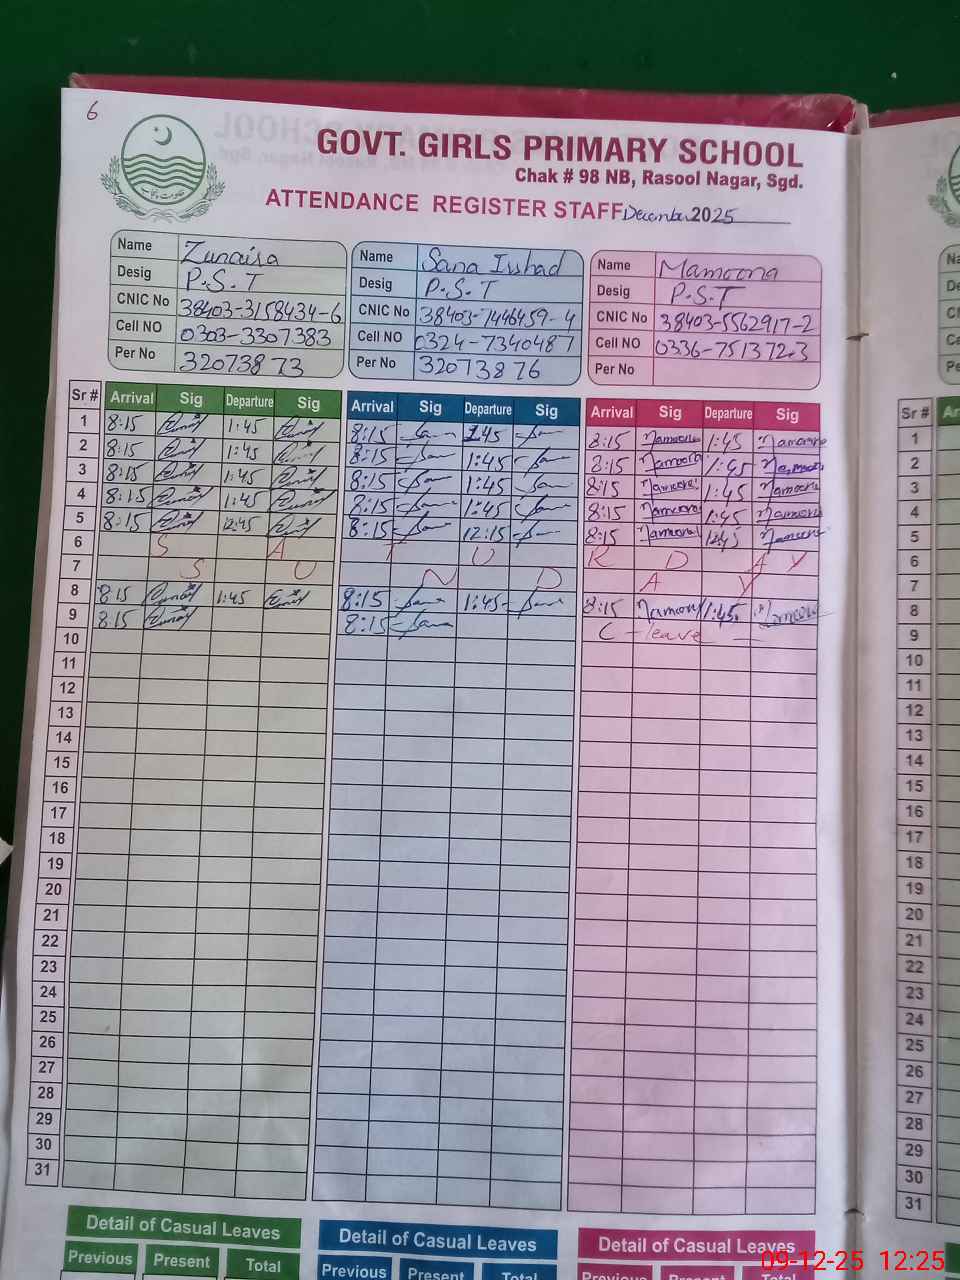 6
GOVT. GIRLS PRIMARY SCHOOL
Chak # 98 NB, Rasool Nagar, Sgd.
ATTENDANCE REGISTER STAFF December 2025
Name Zunaisa
Desig P.S.T
CNIC No 38403-3158434-6
Cell NO 0303-3307383
Per No 32073873
Name Sana Irshad
Desig P.S.T
CNIC No 38403-7446459-4
Cell NO 0324-7340487
Per No 32073876
Name Mamoona
Desig P.S.T
CNIC No 38403-5562917-2
Cell NO 0336-7513723
Per No
Sr # Arrival Sig Departure Sig Arrival Sig Departure Sig Arrival Sig Departure Sig Sr #
1 8:15 1:45 8:15 1:45 8:15 Mamoona 1:45 Mamoona 1
2 8:15 1:45 8:15 1:45 8:15 Mamoona 1:45 Mamoona 2
3 8:15 1:45 8:15 1:45 8:15 Mamoona 1:45 Mamoona 3
4 8:15 1:45 8:15 1:45 8:15 Mamoona 1:45 Mamoona 4
5 8:15 12:45 8:15 12:15 8:15 Mamoona 12:45 Mamoona 5
6 S A T U R D A Y 6
7 S U N D A Y 7
8 8:15 1:45 8:15 1:45 8:15 Mamoona 1:45 Mamoona 8
9 8:15 8:15 C-leave 9
10 10
11 11
12 12
13 13
14 14
15 15
16 16
17 17
18 18
19 19
20 20
21 21
22 22
23 23
24 24
25 25
26 26
27 27
28 28
29 29
30 30
31 31
Detail of Casual Leaves Detail of Casual Leaves Detail of Casual Leaves
Previous Present Total Previous Present Total Previous Present Total
09-12-25 12:25